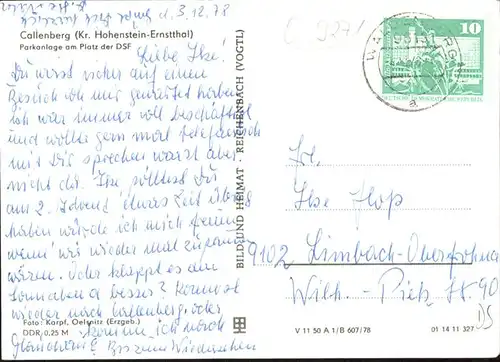 d. 3.12.78
Callenberg (Kr. Hohenstein-Ernstthal)
Parkanlage am Platz der DSF
Liebe Ilse!
Du wirst sicher auf einen
Besuch von mir gewartet haben
ich war immer voll beschäftigt
und wollte gern mal telefonisch
mit Dir sprechen warst aber
nicht da. Ilse solltest Du
am 2. Advent etwas Zeit übrig
haben würde ich mich freuen
wenn wir wieder mal zusammen
wären. Oder klappt es am
Sonnabend besser? Kommst
wieder nach Callenberg oder
komme ich nach
Bis zum Wiedersehen
Foto: Karpf, Oelsnitz (Erzgeb.)
DDR 0,25 M
BILD UND HEIMAT · REICHENBACH (VOGTL)
10
DEUTSCHE DEMOKRATISCHE REPUBLIK
a
Fr.
Ilse Hopf
9102 Limbach-Oberfrohna
Wilh.-Pieck-Str. 90
V 11 50 A 1/B 607/78
01 14 11 327